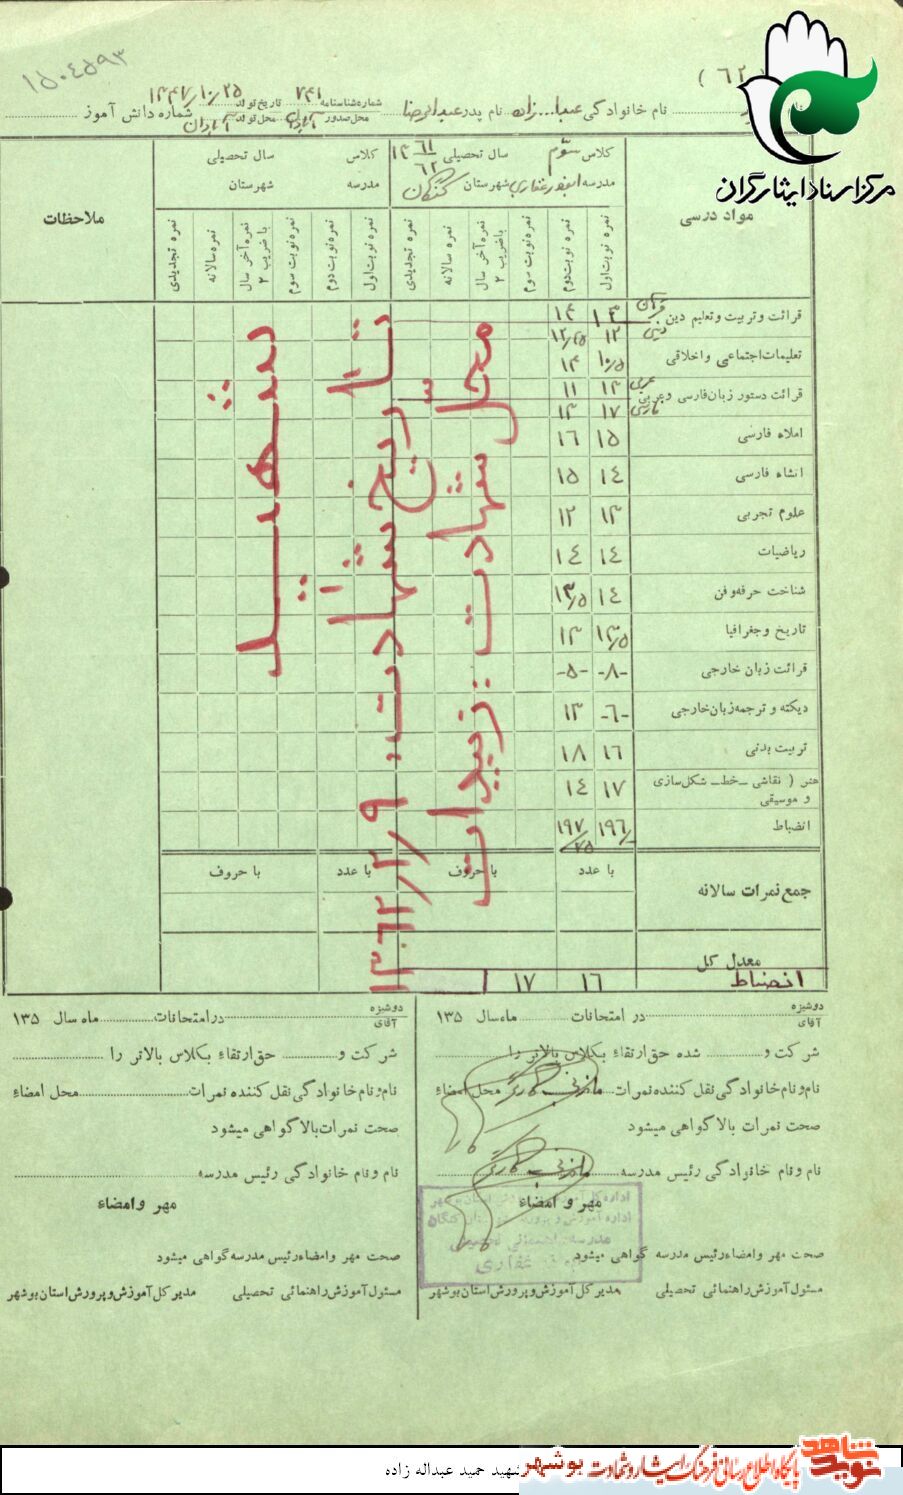 ۱۵۰۴۵۹۳
مرکز اسناد ایثارگران
نام خانوادگی عبدا... زاده نام پدر عبدالرضا شماره شناسنامه ۷۴۱ تاریخ تولد ۱۳۴۷/۱۰/۲۵
محل صدور آبادان محل تولد آبادان شماره دانش آموز
کلاس سوم سال تحصیلی ۱۳ ۶۱/۶۲ کلاس سال تحصیلی
مدرسه ابوذر غفاری شهرستان کنگان مدرسه شهرستان
مواد درسی
ملاحظات
نمره نوبت اول نمره نوبت دوم نمره نوبت سوم نمره آخر سال با ضریب ۲ نمره سالانه نمره تجدیدی
نمره نوبت اول نمره نوبت دوم نمره نوبت سوم نمره آخر سال با ضریب ۲ نمره سالانه نمره تجدیدی
قرائت و تربیت و تعلیم دین قرآن ۱۳ ۱۴
دینی ۱۲ ۱۲/۲۵
تعلیمات اجتماعی و اخلاقی ۱۰/۵ ۱۳
قرائت دستور زبان فارسی و عربی عربی ۱۳ ۱۱
فارسی ۱۷ ۱۳
املاء فارسی ۱۵ ۱۶
انشاء فارسی ۱۴ ۱۵
علوم تجربی ۱۳ ۱۲
ریاضیات ۱۴ ۱۴
شناخت حرفه و فن ۱۴ ۱۳/۵
تاریخ و جغرافیا ۱۳/۵ ۱۳
قرائت زبان خارجی -۸- -۵-
دیکته و ترجمه زبان خارجی -۶- ۱۳
تربیت بدنی ۱۶ ۱۸
هنر ( نقاشی - خط - شکل سازی
و موسیقی ۱۷ ۱۴
انضباط ۱۹۶/- ۱۹۷/۷۵
جمع نمرات سالانه با عدد با حروف با عدد با حروف
معدل کل
انضباط ۱۶ ۱۷
شهید
تاریخ شهادت ۱۳۶۲/۳/۹
محل شهادت: زبیدات
دوشیزه
آقای در امتحانات ماه سال ۱۳۵
شرکت و شده حق ارتقاء بکلاس بالاتر را
نام و نام خانوادگی نقل کننده نمرات محل امضاء
صحت نمرات بالا گواهی میشود
نام و نام خانوادگی رئیس مدرسه
مهر و امضاء
صحت مهر و امضاء رئیس مدرسه گواهی میشود
مسئول آموزش راهنمائی تحصیلی مدیر کل آموزش و پرورش استان بوشهر
دوشیزه
آقای در امتحانات ماه سال ۱۳۵
شرکت و حق ارتقاء بکلاس بالاتر را
نام و نام خانوادگی نقل کننده نمرات محل امضاء
صحت نمرات بالا گواهی میشود
نام و نام خانوادگی رئیس مدرسه
مهر و امضاء
صحت مهر و امضاء رئیس مدرسه گواهی میشود
مسئول آموزش راهنمائی تحصیلی مدیر کل آموزش و پرورش استان بوشهر
شهید حمید عبداله زاده
نوید شاهد پایگاه اطلاع رسانی فرهنگ ایثار و شهادت بوشهر